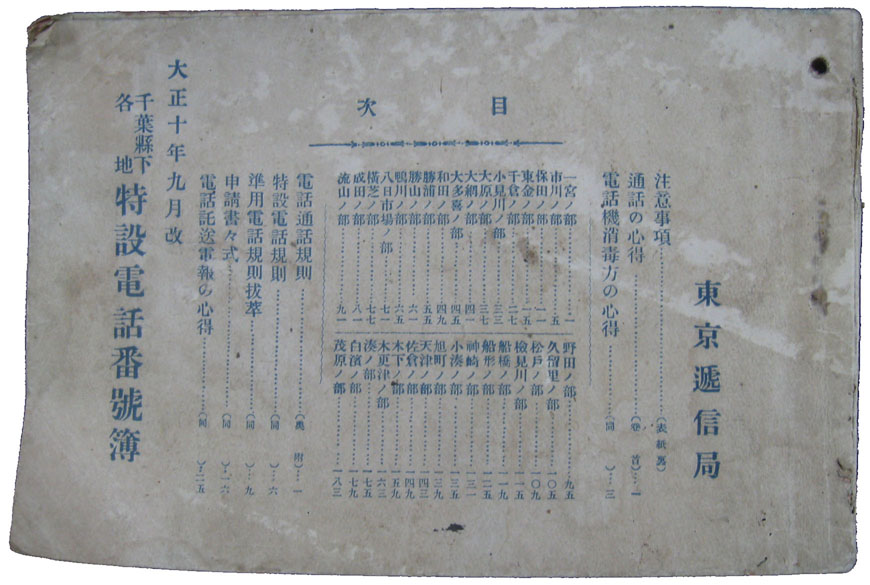 東京遞信局
目次
注意事項……(表紙裏)
通話の心得……(卷首)…一
電話機消毒方の心得……(同)…三
一宮ノ部……一
市川ノ部……五
保田ノ部……一一
東金ノ部……一五
千倉ノ部……二七
小見川ノ部……三三
大原ノ部……三七
大網ノ部……四一
大多喜ノ部……四五
和田ノ部……四九
勝浦ノ部……五五
勝山ノ部……六一
鴨川ノ部……六五
八日市場ノ部……七一
橫芝ノ部……七七
成田ノ部……八一
流山ノ部……九一
野田ノ部……九五
久留里ノ部……一〇五
松戶ノ部……一〇九
檢見川ノ部……一一五
船橋ノ部……一一九
船形ノ部……一二五
神崎ノ部……一三一
小湊ノ部……一三五
旭町ノ部……一三九
天津ノ部……一四三
佐倉ノ部……一四九
木下ノ部……一五九
木更津ノ部……一六三
湊ノ部……一七五
白濱ノ部……一七九
茂原ノ部……一八三
電話通話規則……(奧附)…一
特設電話規則……(同)…六
準用電話規則拔萃……(同)…九
申請書々式……(同)…一六
電話託送電報の心得……(同)…二五
大正十年九月改
千葉縣下
各地
特設電話番號簿